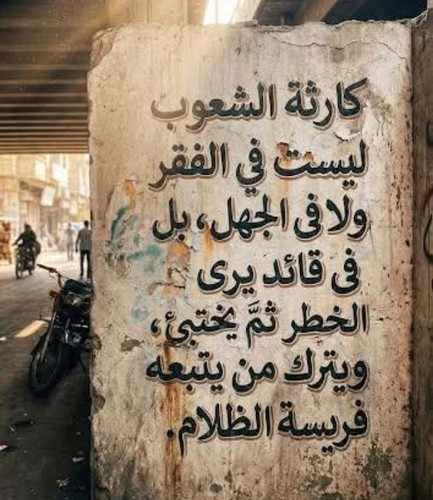 كارثة الشعوب
ليست في الفقر
ولا فى الجهل، بل
فى قائد يرى
الخطر ثمَّ يختبئ،
ويترك من يتبعه
فريسة الظلام.